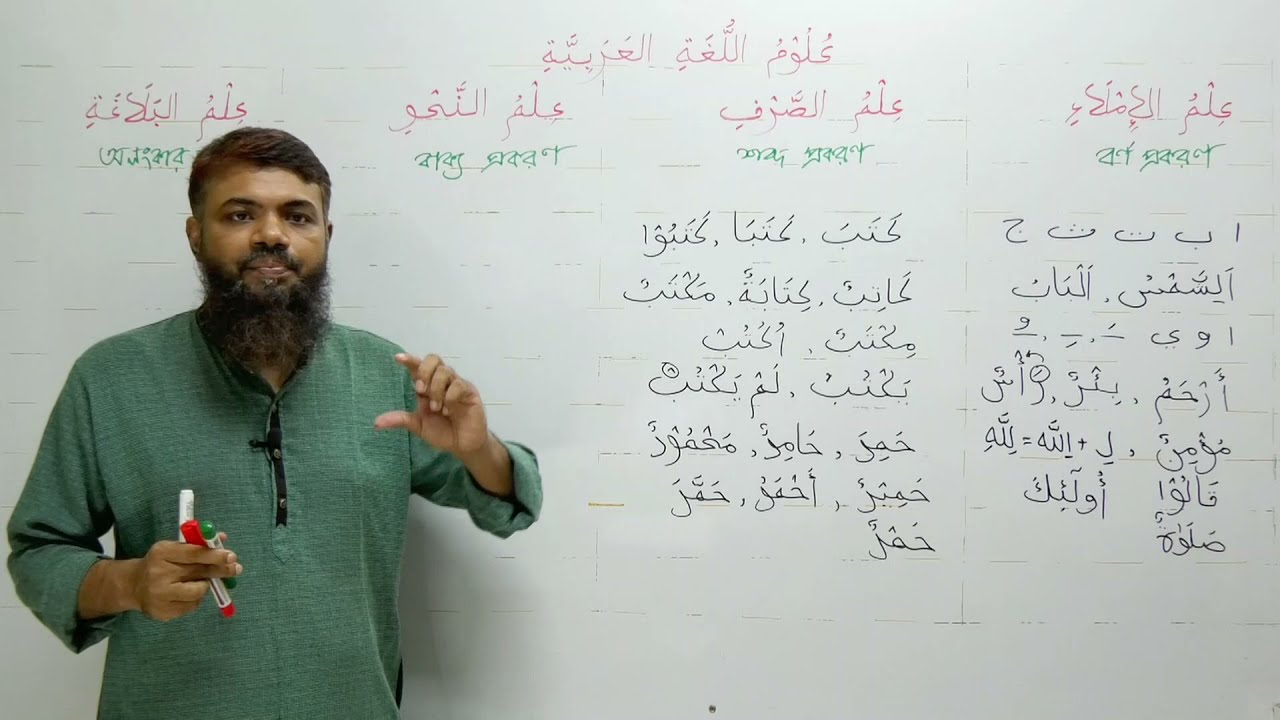 عُلُوْمُ اللُّغَةِ العَرَبِيَّةِ
عِلْمُ الإِمْلَاءِ عِلْمُ الصَّرْفِ عِلْمُ النَّحْوِ عِلْمُ البَلَاغَةِ
বর্ণ প্রকরণ শব্দ প্রকরণ বাক্য প্রকরণ অলংকার
ا ب ت ث ج
اَلشَّمْسُ , اَلْبَابُ
ا و ي
أَرْحَمُ , بِئْرٌ , رَأْسٌ
مُؤْمِنٌ , لِ + اللّٰه = لِلّٰهِ
قَالُوْا أُولَٓئِكَ
صَلَوٰةٌ
كَتَبَ , كَتَبَا , كَتَبُوْا
كَاتِبٌ , كِتَابَةٌ , مَكْتَبٌ
مِكْتَبٌ , اُكْتُبْ
يَكْتُبُ , لَمْ يَكْتُبْ
حَمِدَ , حَامِدٌ , مَحْمُوْدٌ
حَمِيْدٌ , أَحْمَدُ , حَمَّدَ
حَمْدٌ